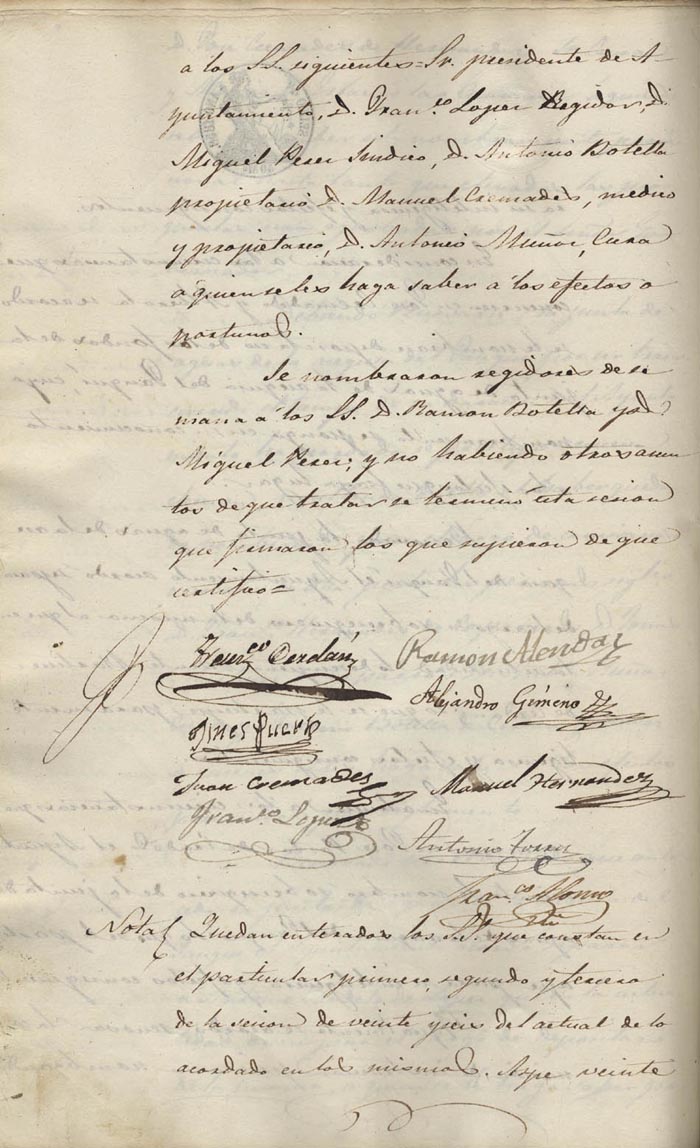 a los SS. siguientes = Sr. presidente de A
yuntamiento, D. Fran.co Lopez Regidor, D.
Miguel Perez Sindico, D. Antonio Botella
propietario D. Manuel Cremades, medico
y propietario, D. Antonio Muñoz, Cura
á quienseles haga saber á los efectos o
portunos.
Se nombraron regidores de se
mana á los SS. D. Ramon Botella y a D.
Miguel Perez; y no habiendo otros asun
tos de que tratar se terminó esta sesion
que firmaron los que supieron de que
certifico =
Cerdán
Ramon Mendoz
Alejandro Gimeno
Gines Puerto
Juan Cremades
Manuel Hernandez
Fran.co Lopez
Antonio
Fran.co Alonso
Nota Quedan enterados los SS. que constan en
el particular primero, segundo y tercero
de la sesion de veinte y seis del actual de lo
acordado en los mismos. Aspe veinte